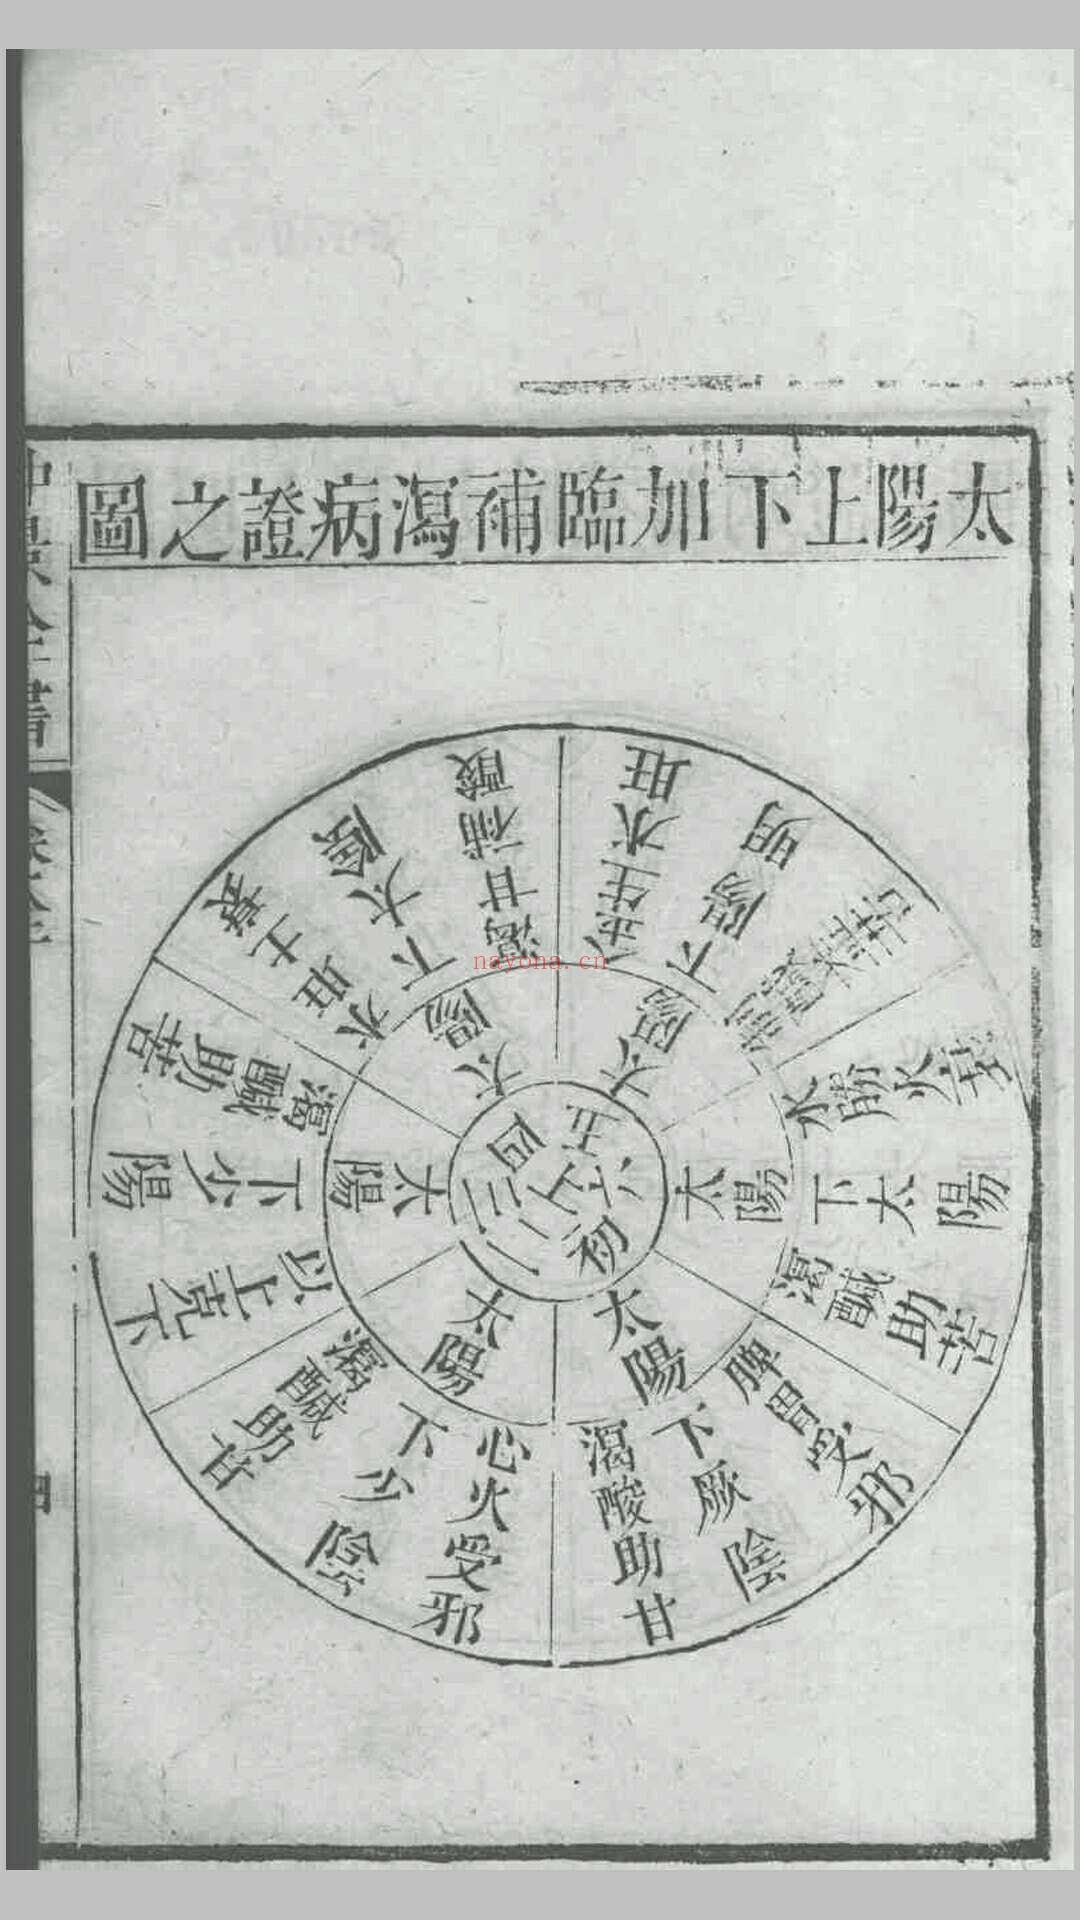 太陽上下加臨補瀉病證之圖
上
初
二
三
四
五
六
太陽
下厥陰
瀉酸助甘
脾胃受邪
太陽
下少陰
心火受邪
瀉鹹助甘
太陽
下少陽
以上克下
瀉鹹助苦
太陽
下太陰
水旺土衰
瀉甘補酸
太陽
下陽明
生水旺
太陽
下太陽
水勝火
瀉鹹助苦
全書
nayona.cn